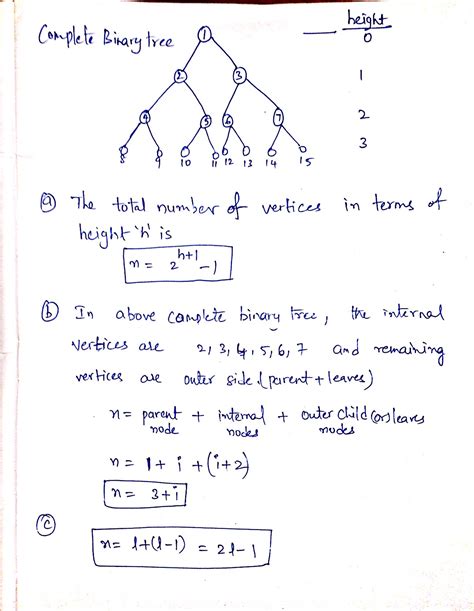 Complete Binary tree
height
0
1
1
2
3
2
4
5
6
7
3
8 9 10 11 12 13 14 15
(a) The total number of vertices in terms of
height 'h' is
n = 2^h+1 - 1
(b) In above complete binary tree, the internal
vertices are 2, 3, 4, 5, 6, 7 and remaining
vertices are outer side. (parent + leaves)
n = parent + internal + outer child (or) leaves
node nodes nodes
n = 1 + i + (i+2)
n = 3 + i
(c)
n = l + (l-1) = 2l - 1